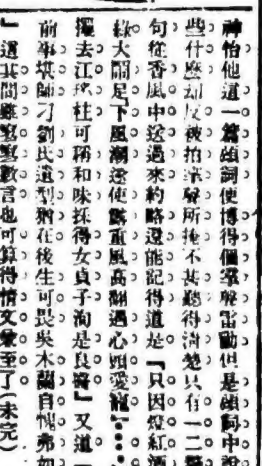 神怡他道一篇頌詞便博得個掌聲雷動但是頌詞中說
些什麼却反被拍掌聲所掩不甚聽得清楚只有一二
句從香風中送過來約略還能記得道是『只因燈紅酒
綠大鬧足下風潮遂使 重風高 遇心頭愛寵』
獨去江珧柱可稱和味採得女貞子洵是良 』又道『
前事堪師刀劉氏遺型猶在後生可畏吳木蘭自愧弗如
』這其間雖寥寥數言也可算得情文兼至了(未完)